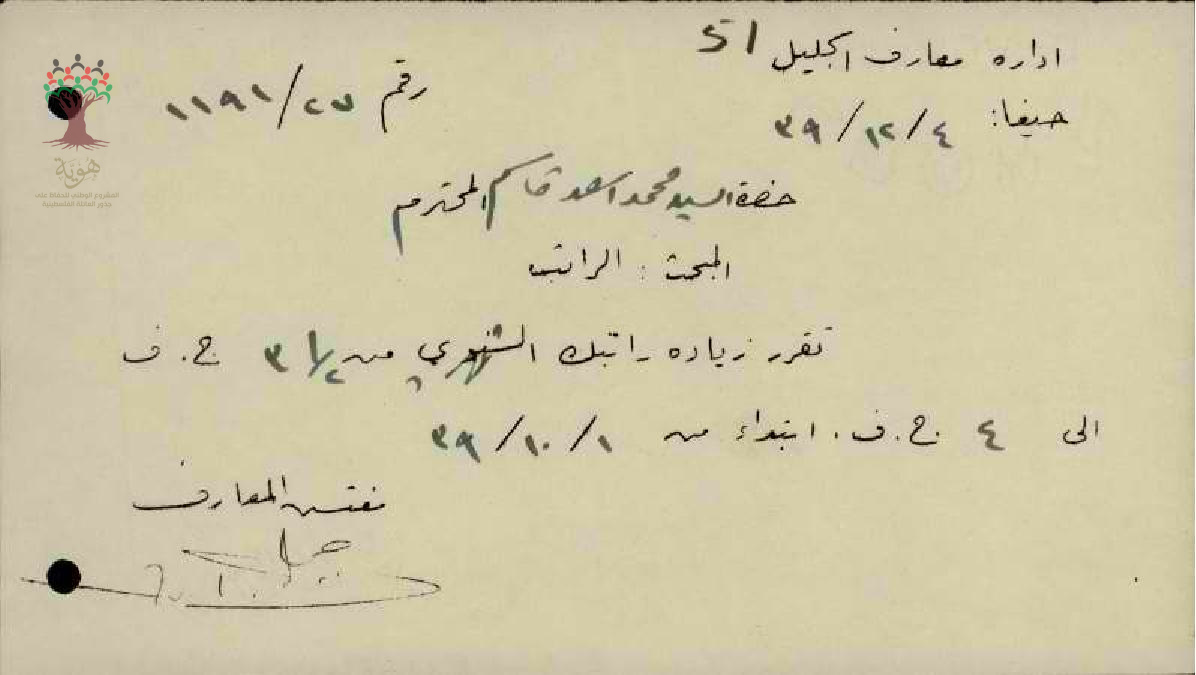 اداره معارف الجليل 51
حيفا: ٣٩/١٢/٤
رقم ١١٩١/٢٧
حضرة السيد محمد اسعد قاسم المحترم
المبحث : الراتب
تقرر زياده راتبك الشهري من ٣١/٢ ج. ف
الى ٤ ج. ف. ابتداء من ٣٩/١٠/١
مفتش المعارف
هوية
المشروع الوطني للحفاظ على
جذور العائلة الفلسطينية